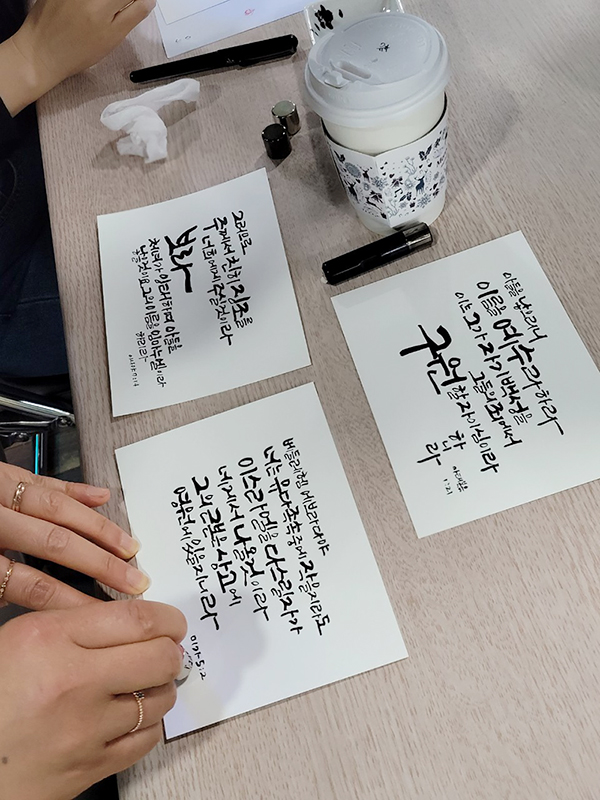 그러므로
주께서 친히 징조를
너희에게 주실 것이라
보라
처녀가 잉태하여 아들을
낳을 것이요 그의 이름을 임마누엘이라
하리라
이사야 7:14
아들을 낳으리니
이름을 예수라 하라
이는 그가 자기 백성을
그들의 죄에서
구원할 자이심이라
하니라
마태복음
1:21
베들레헴 에브라다야
너는 유다 족속 중에 작을지라도
이스라엘을 다스릴 자가
네게서 나올 것이라
그의 근본은 상고에
영원에 있을지니라
미가 5:2